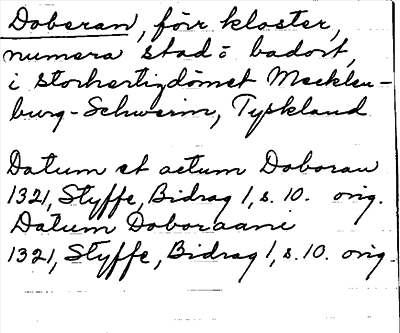 Doberan, förr kloster,
numera stad o badort,
i storhertigdömet Mecklen-
burg-Schwerin, Tyskland
Datum et actum Doboran
1321, Styffe, Bidrag 1, s. 10. orig.
Datum Doboraani
1321, Styffe, Bidrag 1, s. 10. orig.